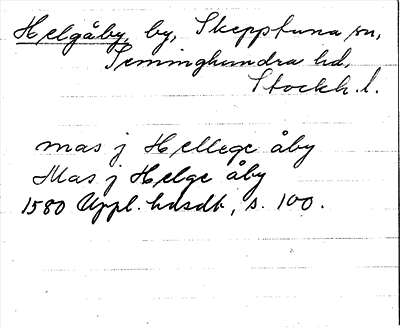 Helgåby, by, Skepptuna sn,
Seminghundra hd,
Stockh. l.
mas j Hellege åby
Mas j Helge åby
1580 Uppl. husdb, s. 100.